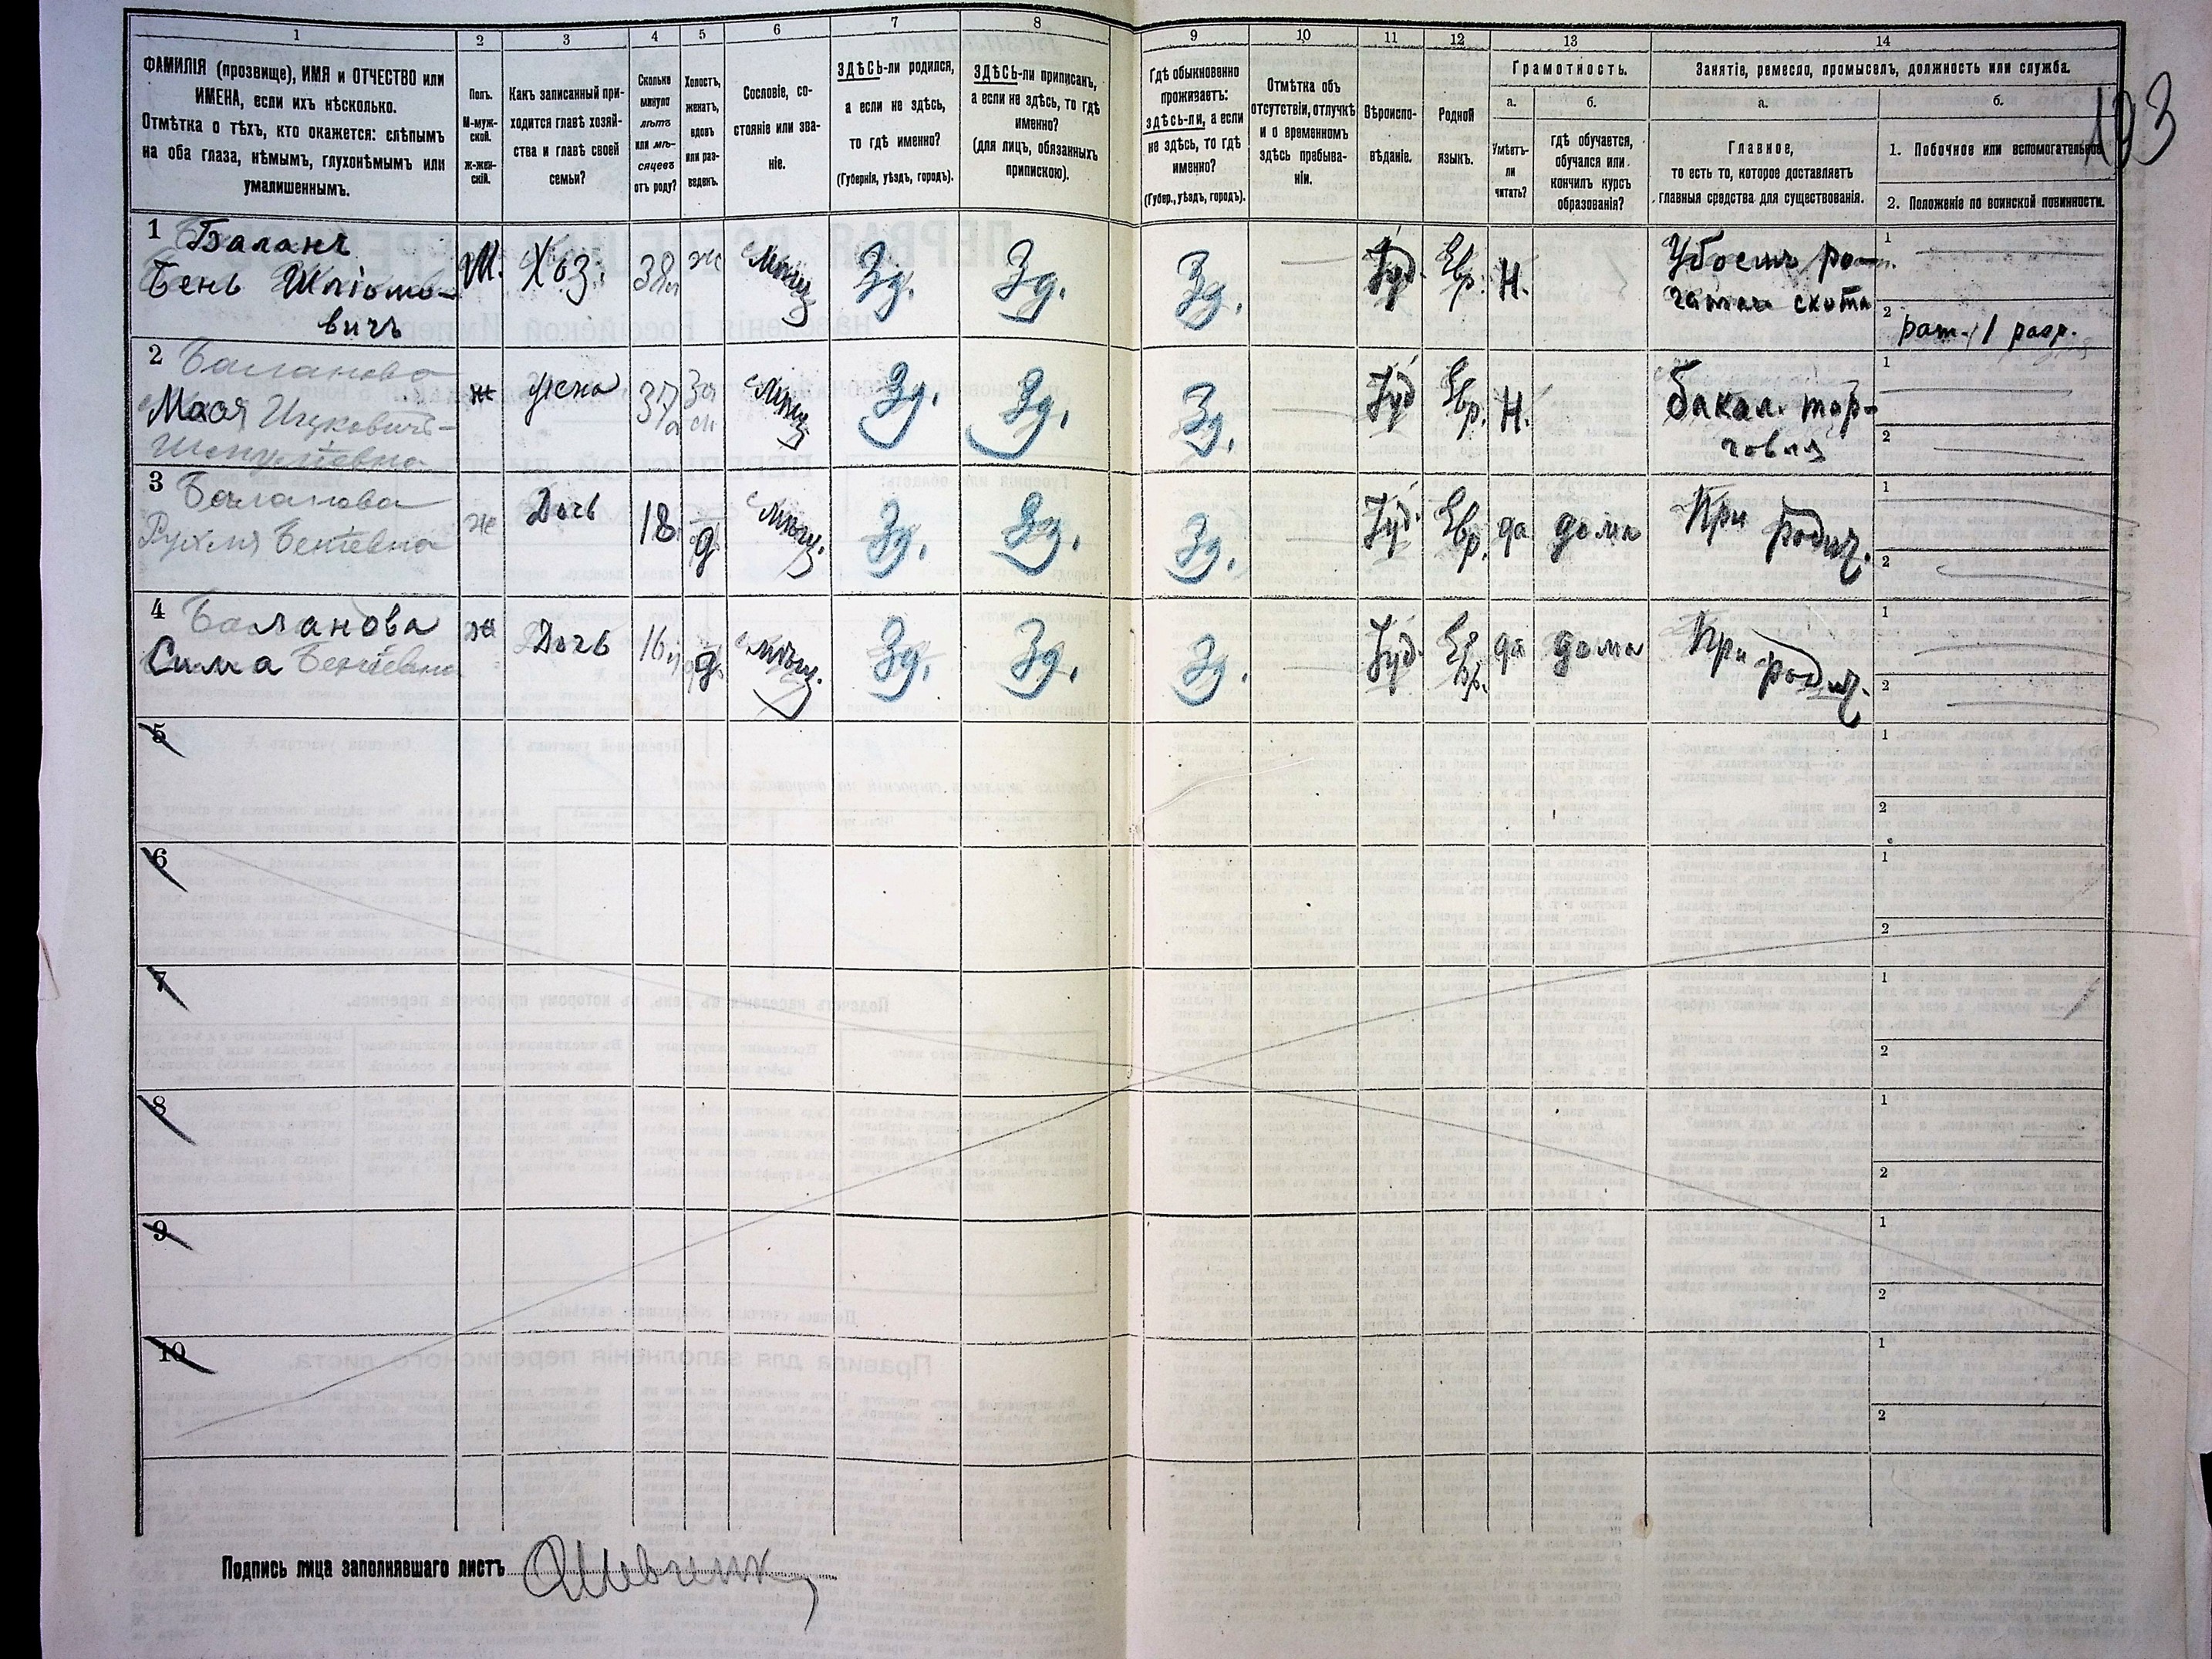 1 2 3 4 5 6 7 8 9 10 11 12 13 14
ФАМИЛІЯ (прозвище), ИМЯ и ОТЧЕСТВО или
ИМЕНА, если ихъ нѣсколько.
Отмѣтка о тѣхъ, кто окажется: слѣпымъ
на оба глаза, нѣмымъ, глухонѣмымъ или
умалишеннымъ.
Полъ.
М-муж-
ской.
ж-жен-
скій.
Какъ записанный при-
ходится главѣ хозяй-
ства и главѣ своей
семьи?
Сколько
минуло
лѣтъ
или мѣ-
сяцевъ
отъ роду?
Холостъ,
женатъ,
вдовъ
или раз-
веденъ.
Сословіе, со-
стояніе или зва-
ніе.
ЗДѢСЬ-ли родился,
а если не здѣсь,
то гдѣ именно?
(Губернія, уѣздъ, городъ).
ЗДѢСЬ-ли приписанъ,
а если не здѣсь, то гдѣ
именно?
(для лицъ, обязанныхъ
припискою).
Гдѣ обыкновенно
проживаетъ:
здѣсь-ли, а если
не здѣсь, то гдѣ
именно?
(Губер., уѣздъ, городъ).
Отмѣтка объ
отсутствіи, отлучкѣ
и о временномъ
здѣсь пребыва-
ніи.
Вѣроиспо-
вѣданіе.
Родной
языкъ.
Грамотность.
а.
Умѣетъ-
ли
читать?
б.
гдѣ обучается,
обучался или
кончилъ курсъ
образованія?
Занятіе, ремесло, промыселъ, должность или служба.
а.
Главное,
то есть то, которое доставляетъ
главныя средства для существованія.
б.
1. Побочное или вспомогательное
2. Положеніе по воинской повинности.
193
1 Баланъ
Бень Шліомо-
вичъ
М.
Хоз.
38
ж
Мѣщ
Зд.
Зд.
Зд.
Іуд.
Евр.
Н.
Убоемъ ро-
гатаго скота
1
2
рат. 1 разр.
2 Баланова
Мася Ицковичъ-
Шмулевна
ж
жена
37
За
м
Мѣщ
Зд.
Зд.
Зд.
Іуд
Евр.
Н.
бакал. тор-
говля
1
2
3 Баланова
Рухля Беніевна
ж
Дочь
18
д
Мѣщ.
Зд.
Зд.
Зд.
Іуд.
Евр.
да
дома
При родит.
1
2
4 Баланова
Сима Беніевна
ж
Дочь
16
д
Мѣщ.
Зд.
Зд.
Зд.
Іуд.
Евр.
да
дома
При родит.
1
2
5
1
2
6
1
2
7
1
2
8
1
2
9
1
2
10
1
2
Подпись лица заполнявшаго листъ